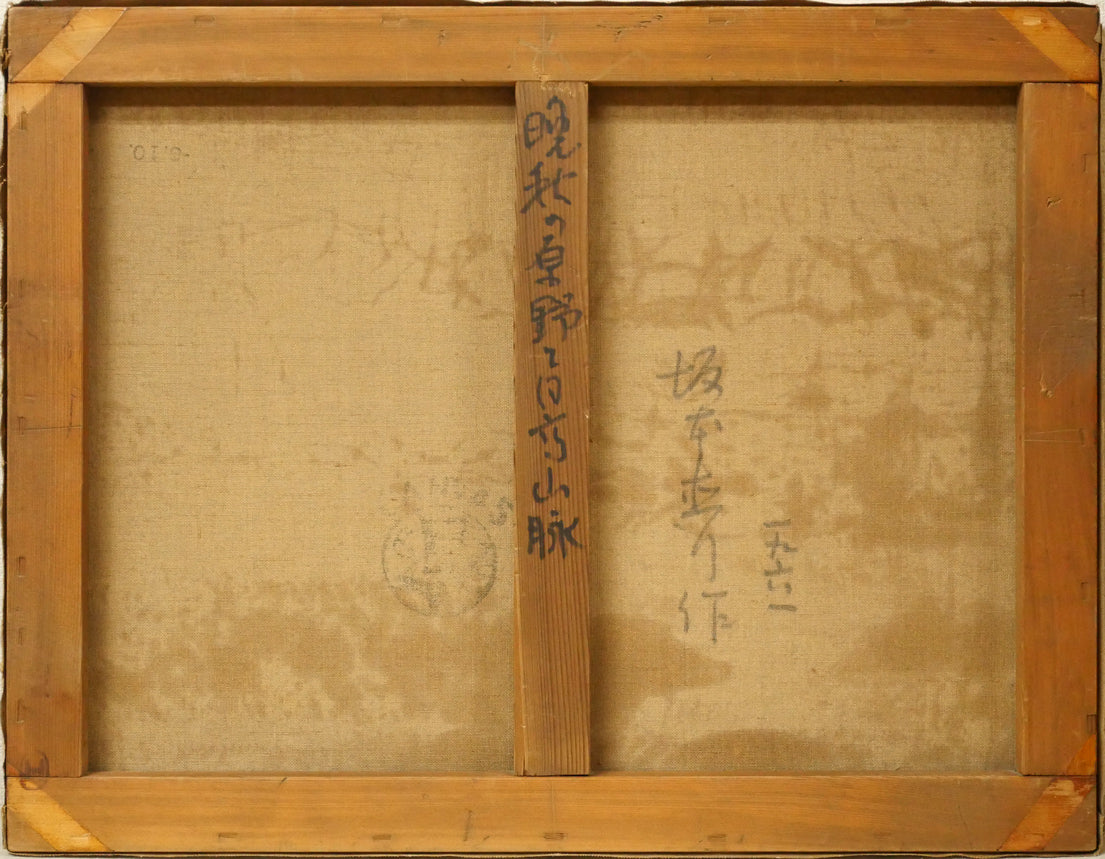 一九六一
坂本直行作
晩秋の原野と日高山脈
-6.10.